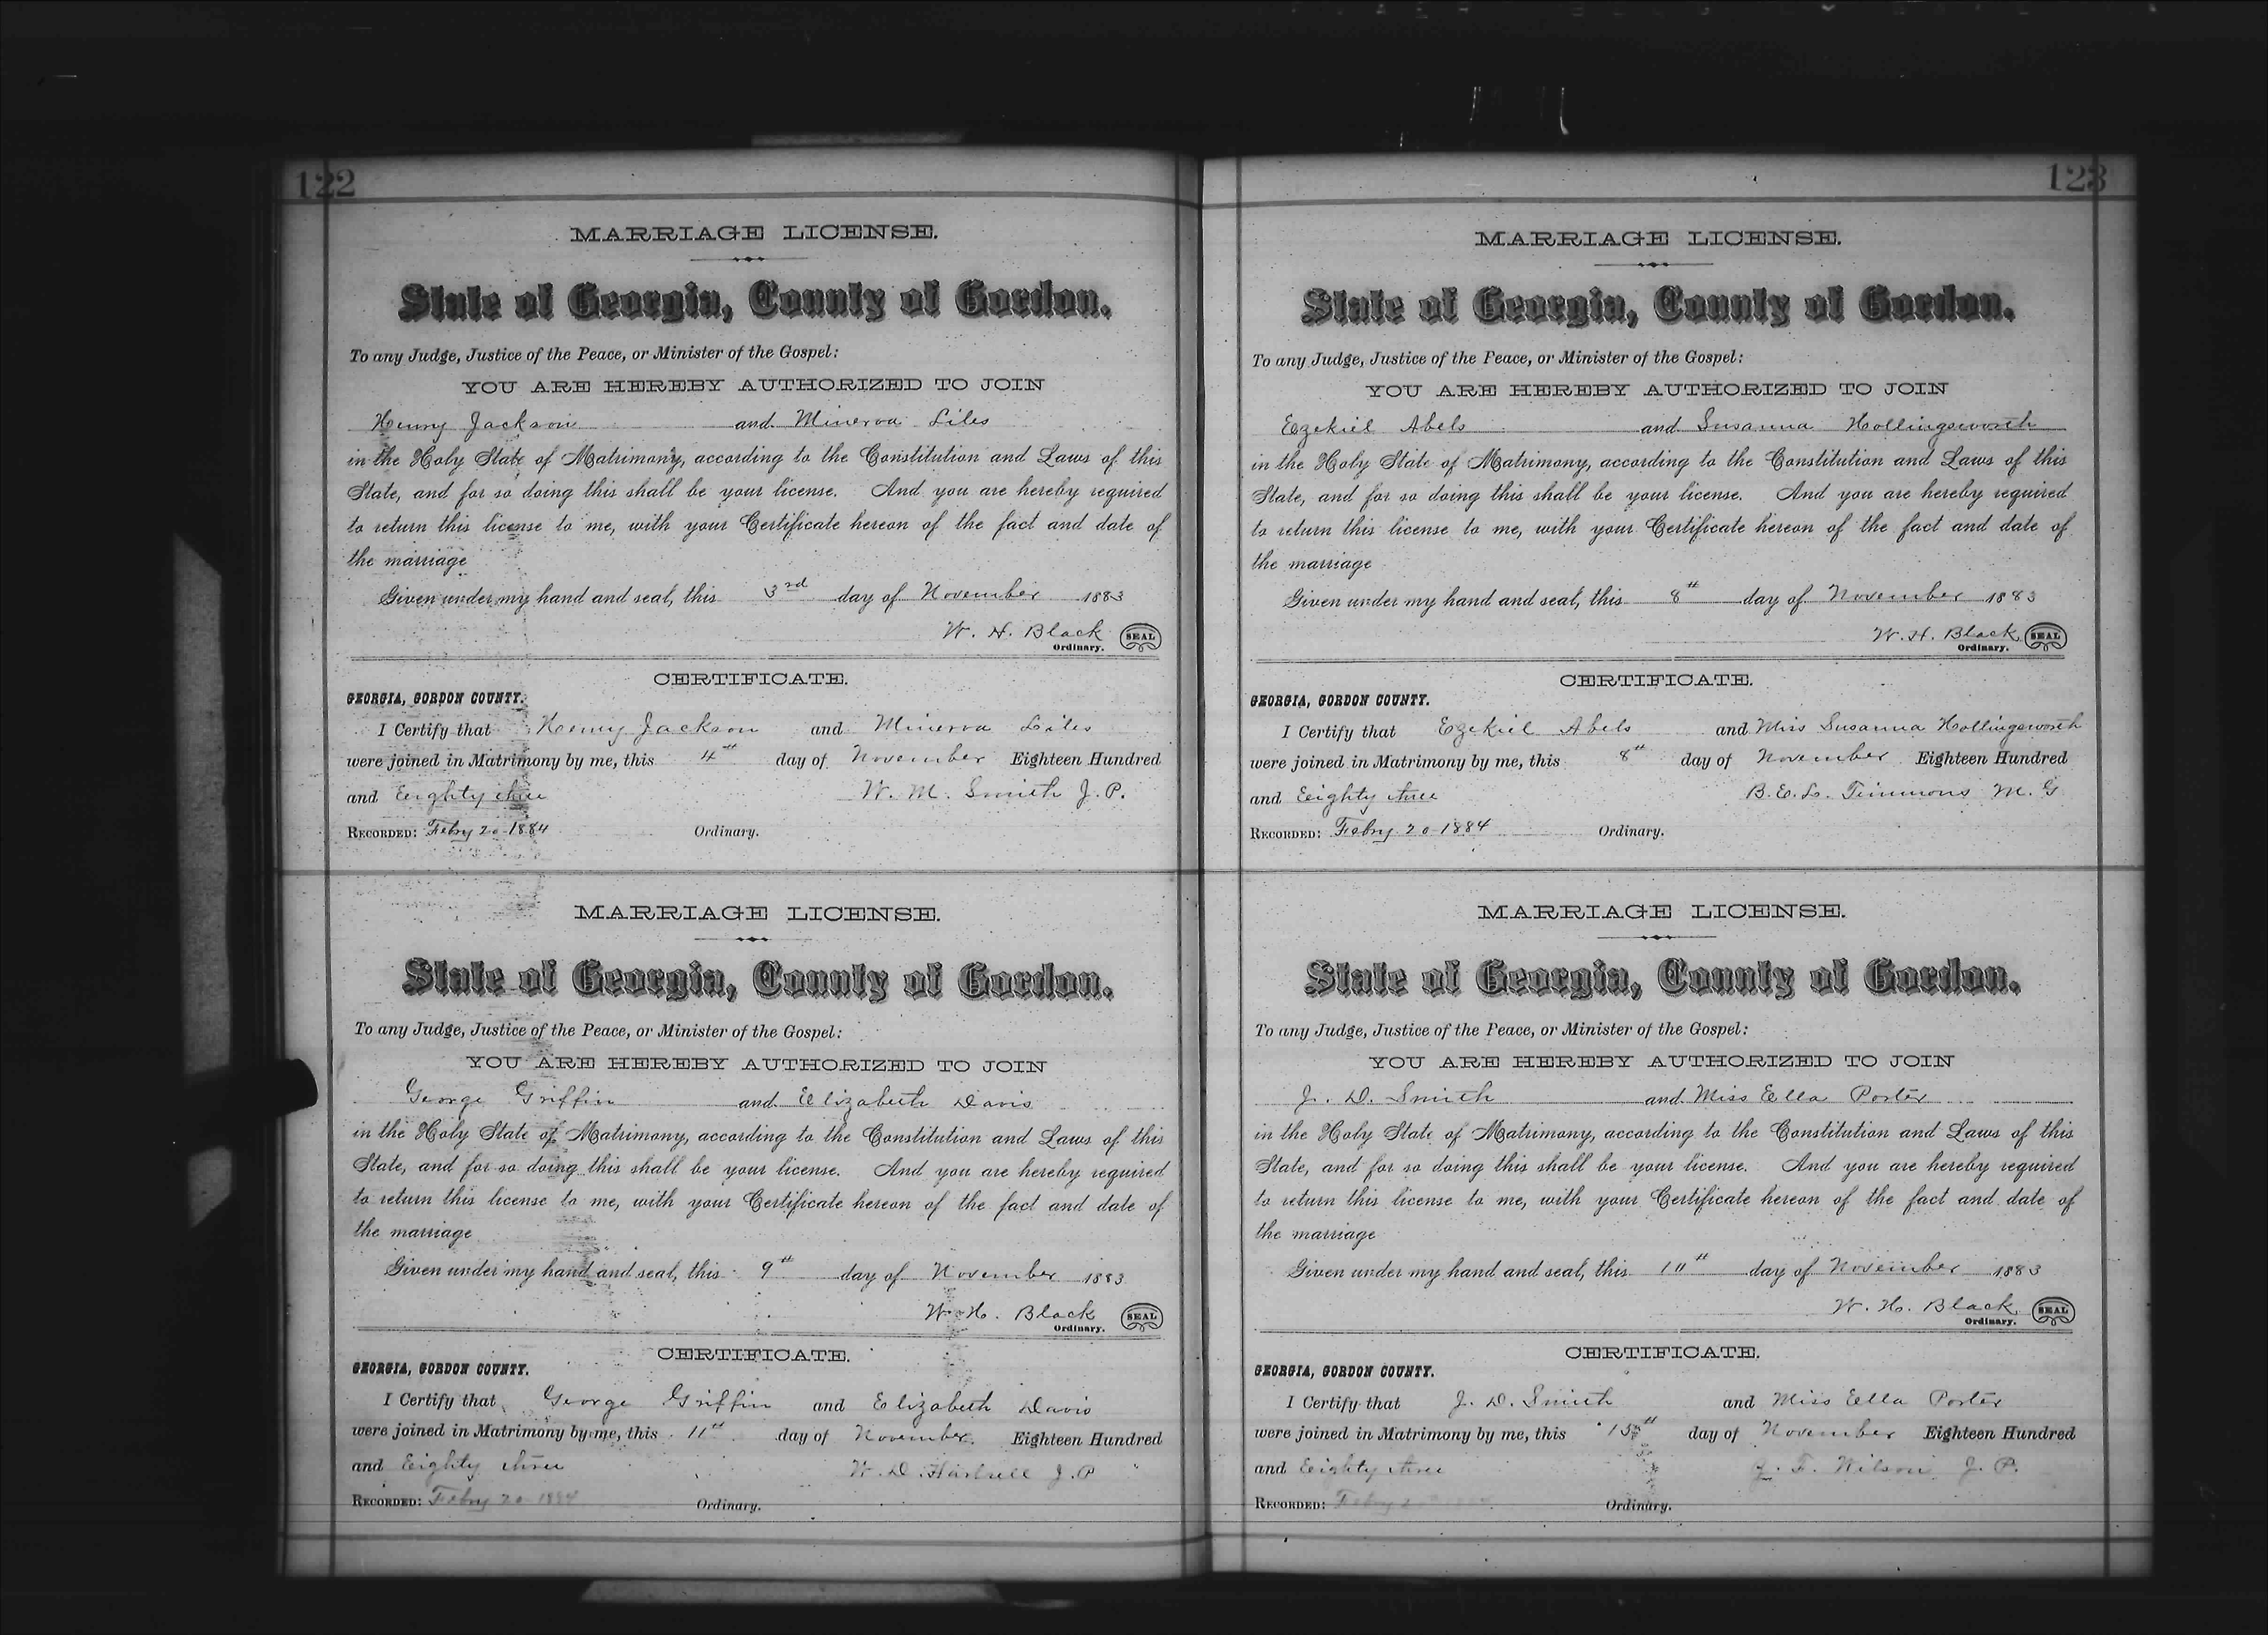 122
MARRIAGE LICENSE.
State of Georgia, County of Gordon.
To any Judge, Justice of the Peace, or Minister of the Gospel:
YOU ARE HEREBY AUTHORIZED TO JOIN
Henry Jackson and Minerva Liles
in the Holy State of Matrimony, according to the Constitution and Laws of this
State, and for so doing this shall be your license. And you are hereby required
to return this license to me, with your Certificate hereon of the fact and date of
the marriage
Given under my hand and seal, this 3rd day of November 1883
W. H. Black SEAL
Ordinary.
CERTIFICATE.
GEORGIA, GORDON COUNTY.
I Certify that Henry Jackson and Minerva Liles
were joined in Matrimony by me, this 4th day of November Eighteen Hundred
and Eighty three W. M. Smith J.P.
RECORDED: Febry 20 1884 Ordinary.
MARRIAGE LICENSE.
State of Georgia, County of Gordon.
To any Judge, Justice of the Peace, or Minister of the Gospel:
YOU ARE HEREBY AUTHORIZED TO JOIN
George Griffin and Elizabeth Davis
in the Holy State of Matrimony, according to the Constitution and Laws of this
State, and for so doing this shall be your license. And you are hereby required
to return this license to me, with your Certificate hereon of the fact and date of
the marriage
Given under my hand and seal, this 9th day of November 1883
W. H. Black SEAL
Ordinary.
CERTIFICATE.
GEORGIA, GORDON COUNTY.
I Certify that George Griffin and Elizabeth Davis
were joined in Matrimony by me, this 11th day of November Eighteen Hundred
and Eighty three W. D. J.P
RECORDED: Febry 20 1884 Ordinary.
123
MARRIAGE LICENSE.
State of Georgia, County of Gordon.
To any Judge, Justice of the Peace, or Minister of the Gospel:
YOU ARE HEREBY AUTHORIZED TO JOIN
Ezekiel Abels and Susanna Hollingsworth
in the Holy State of Matrimony, according to the Constitution and Laws of this
State, and for so doing this shall be your license. And you are hereby required
to return this license to me, with your Certificate hereon of the fact and date of
the marriage
Given under my hand and seal, this 8th day of November 1883
W. H. Black SEAL
Ordinary.
CERTIFICATE.
GEORGIA, GORDON COUNTY.
I Certify that Ezekiel Abels and Miss Susanna Hollingsworth
were joined in Matrimony by me, this 8th day of November Eighteen Hundred
and Eighty three B. E. L. Timmons M. G
RECORDED: Febry 20 1884 Ordinary.
MARRIAGE LICENSE.
State of Georgia, County of Gordon.
To any Judge, Justice of the Peace, or Minister of the Gospel:
YOU ARE HEREBY AUTHORIZED TO JOIN
J. D. Smith and Miss Ella Porter
in the Holy State of Matrimony, according to the Constitution and Laws of this
State, and for so doing this shall be your license. And you are hereby required
to return this license to me, with your Certificate hereon of the fact and date of
the marriage
Given under my hand and seal, this 10th day of November 1883
W. H. Black SEAL
Ordinary.
CERTIFICATE.
GEORGIA, GORDON COUNTY.
I Certify that J. D. Smith and Miss Ella Porter
were joined in Matrimony by me, this 15th day of November Eighteen Hundred
and Eighty three F. Wilson J. P.
RECORDED: Febry Ordinary.